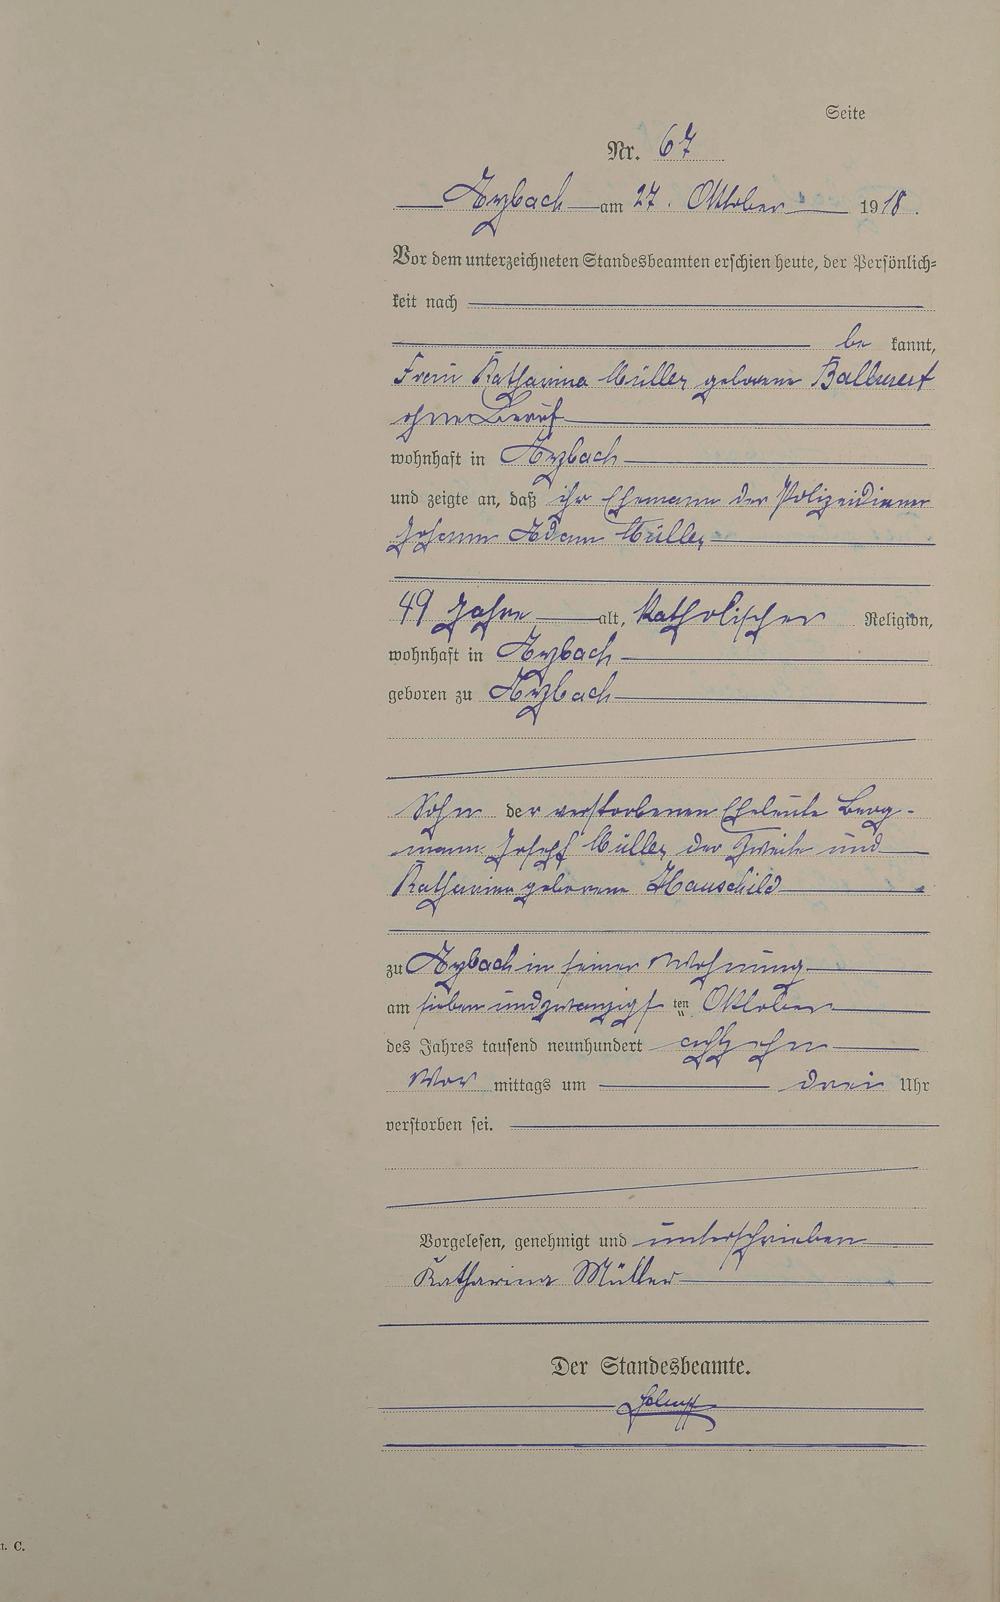 Seite
Nr. 67
Arzbach am 27. Oktober 1918.
Vor dem unterzeichneten Standesbeamten erschien heute, der Persönlich-
keit nach
be kannt,
Frau Katharina Müller geborene
ohne Beruf
wohnhaft in Arzbach
und zeigte an, daß ihr Ehemann der Polizeidiener
Johann Adam Müller
49 Jahre alt, katholischer Religion,
wohnhaft in Arzbach
geboren zu Arzbach
Sohn der verstorbenen Eheleute Berg-
mann Joseph Müller der Zweite und
Katharina geborene Hauschild
zu Arzbach in seiner Wohnung
am sieben undzwanzigsten Oktober
des Jahres tausend neunhundert achtzehn
Vor mittags um drei Uhr
verstorben sei.
Vorgelesen, genehmigt und unterschrieben
Katharina Müller
Der Standesbeamte.
C.